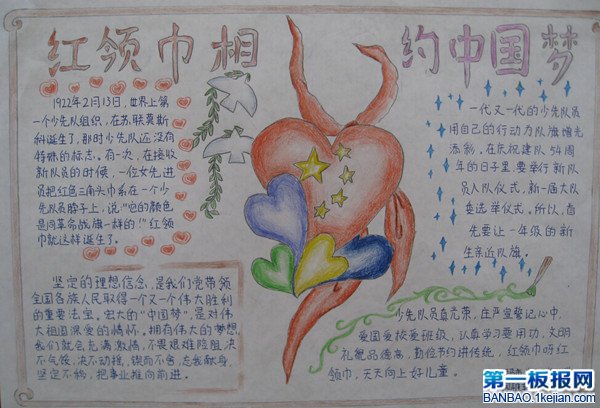 红领巾相
约中国梦
1922年2月13日,世界上第
一个少先队组织,在苏联莫斯
科诞生了,那时少先队还没有
特殊的标志。有一次,在接收
新队员的时候,一位女先进
员把红色三角头巾系在一个少
先队员脖子上,说“它的颜色
是同革命战旗一样的!”红领
巾就这样诞生了。
一代又一代的少先队员
用自己的行动为队旗增光
添彩。在庆祝建队54周
年的日子里,要举行新队
员入队仪式,新一届大队
委选举仪式。所以,首
先要让一年级的新
生亲近队旗。
坚定的理想信念,是我们党带领
全国各族人民取得一个又一个伟大胜利
的重要法宝。宏大的“中国梦”,是对伟
大祖国深爱的情怀。拥有伟大的梦想,
我们就会充满激情,不畏艰难险阻,决
不气馁,决不动摇,锲而不舍,忘我献身,
坚定不移,把事业推向前进。
少先队员真光荣,庄严誓记心中,
爱国爱校爱班级,认真学习要用功,文明
礼貌品德高,勤俭节约讲传统,红领巾呀红
领巾,天天向上好儿童。
第一板报网
BANBAO.1kejian.com